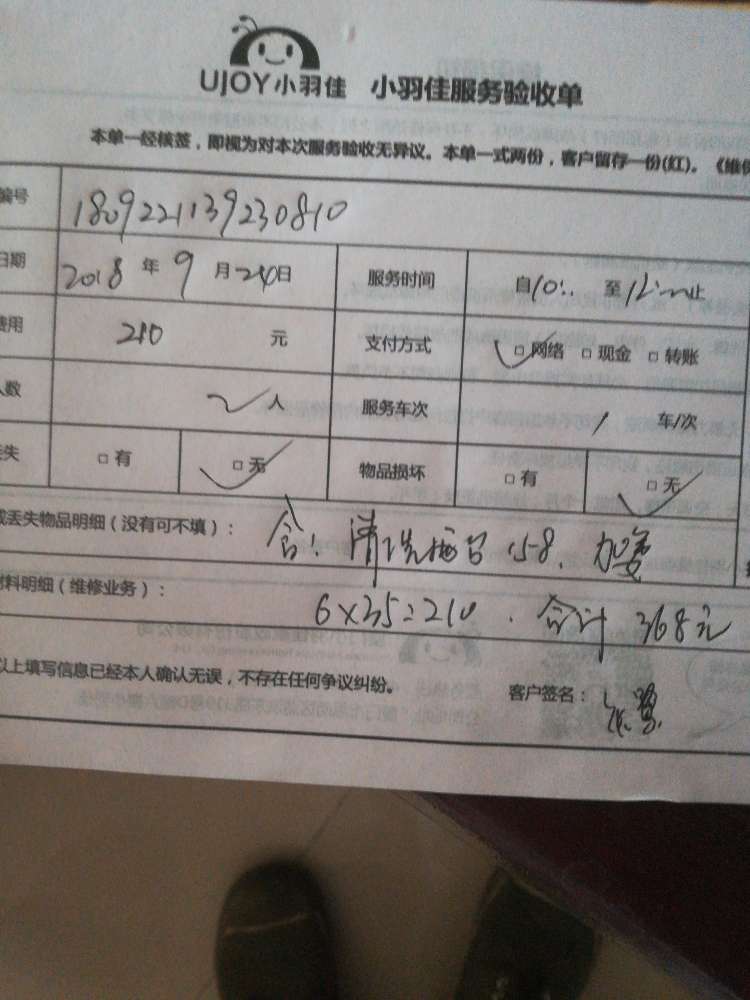 UJOY小羽佳 小羽佳服务验收单
本单一经核签，即视为对本次服务验收无异议。本单一式两份，客户留存一份(红)。《维
编号 1809221139230810
日期 2018年9月24日 服务时间 自10:00至12:00止
费用 210 元 支付方式 □网络 □现金 □转账
人数 2人 服务车次 / 车/次
丢失 □有 □无 物品损坏 □有 □无
或丢失物品明细（没有可不填）： 含：清洗 158，加
材料明细（维修业务）： 6×35=210．合计368元
以上填写信息已经本人确认无误，不存在任何争议纠纷。 客户签名：